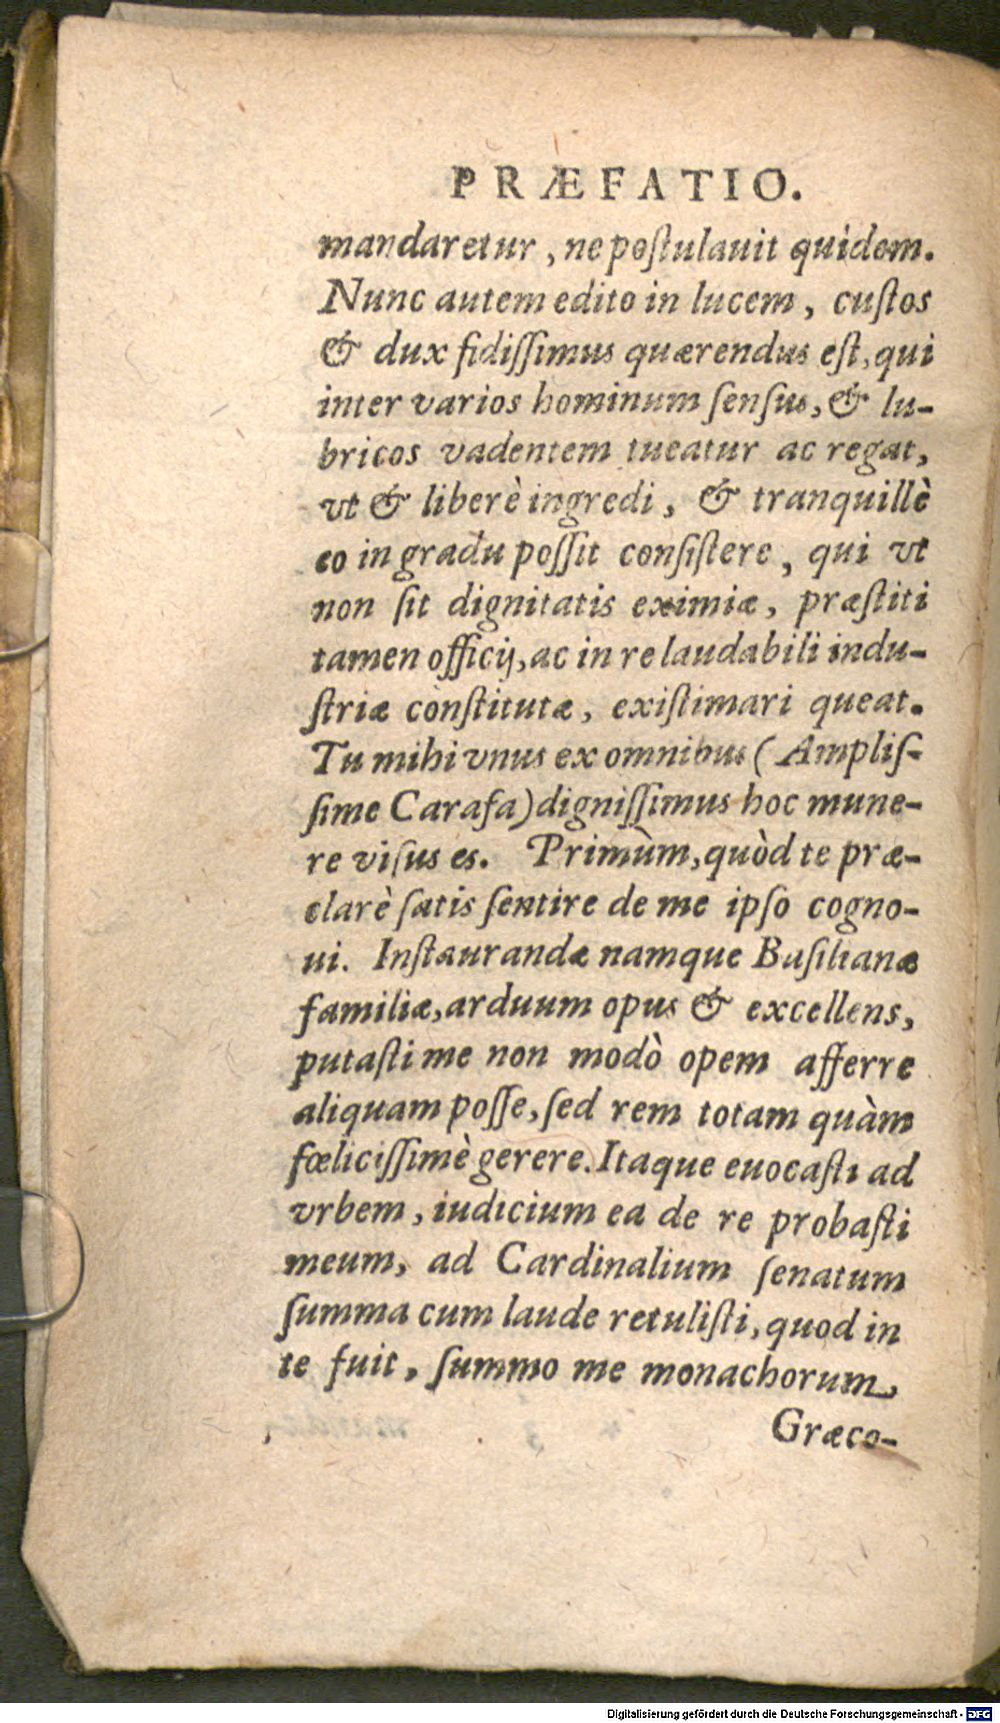 PRÆFATIO.
mandaretur, ne poſtulauit quidem.
Nunc autem edito in lucem, cuſtos
& dux fidiſſimus quærendus eſt, qui
inter varios hominum ſenſus, & lu-
bricos vadentem tueatur ac regat,
vt & liberè ingredi, & tranquillè
eo in gradu poſſit conſiſtere, qui vt
non ſit dignitatis eximiæ, præſtiti
tamen officij, ac in re laudabili indu-
ſtriæ cònſtitutæ, exiſtimari queat.
Tu mihi vnus ex omnibus (Ampliſ-
ſime Carafa) digniſſimus hoc mune-
re viſus es. Primùm, quòd te præ-
clarè ſatis ſentire de me ipſo cogno-
ui. Inſtaurandæ namque Baſilianæ
familiæ, arduum opus & excellens,
putaſti me non modò opem afferre
aliquam poſſe, ſed rem totam quàm
fœliciſſimè gerere. Itaque euocaſti ad
vrbem, iudicium ea de re probaſti
meum, ad Cardinalium ſenatum
ſumma cum laude retuliſti, quod in
te fuit, ſummo me monachorum,
Græco-
Digitalisierung gefördert durch die Deutsche Forschungsgemeinschaft - DFG